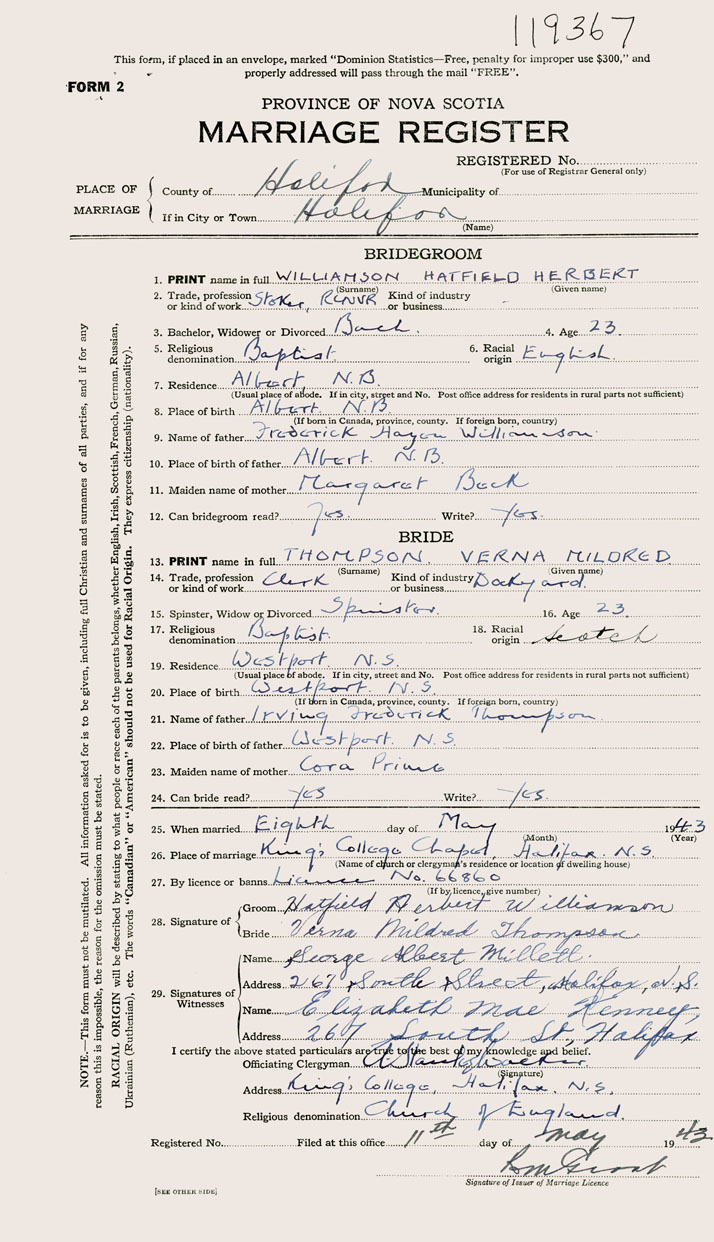 119367
This form, if placed in an envelope, marked "Dominion Statistics—Free, penalty for improper use $300," and
properly addressed will pass through the mail "FREE".
FORM 2
PROVINCE OF NOVA SCOTIA
MARRIAGE REGISTER
REGISTERED No.
(For use of Registrar General only)
PLACE OF MARRIAGE
County of Halifax Municipality of
If in City or Town Halifax
(Name)
BRIDEGROOM
1. PRINT name in full WILLIAMSON HATFIELD HERBERT
(Surname) (Given name)
2. Trade, profession or kind of work Stoker, RCNVR Kind of industry or business -
3. Bachelor, Widower or Divorced Bach. 4. Age 23
5. Religious denomination Baptist 6. Racial origin English.
7. Residence Albert, N.B.
(Usual place of abode. If in city, street and No. Post office address for residents in rural parts not sufficient)
8. Place of birth Albert N.B
(If born in Canada, province, county. If foreign born, country)
9. Name of father Frederick Williamson
10. Place of birth of father Albert. N.B.
11. Maiden name of mother Margaret Beck
12. Can bridegroom read? Yes. Write? Yes.
BRIDE
13. PRINT name in full THOMPSON. VERNA MILDRED
(Surname) (Given name)
14. Trade, profession or kind of work Clerk Kind of industry or business Dockyard.
15. Spinster, Widow or Divorced Spinster. 16. Age 23
17. Religious denomination Baptist. 18. Racial origin Scotch
19. Residence Westport N.S.
(Usual place of abode. If in city, street and No. Post office address for residents in rural parts not sufficient)
20. Place of birth Westport. N.S.
(If born in Canada, province, county. If foreign born, country)
21. Name of father Irving Frederick Thompson.
22. Place of birth of father Westport N.S.
23. Maiden name of mother Cora Prime
24. Can bride read? Yes Write? Yes.
25. When married Eighth day of May 1943
(Month) (Year)
26. Place of marriage King's College Chapel, Halifax. N.S.
(Name of church or clergyman's residence or location of dwelling house)
27. By licence or banns Licence No. 66860
(If by licence, give number)
28. Signature of
Groom Hatfield Herbert Williamson
Bride Verna Mildred Thompson.
29. Signatures of Witnesses
Name George Albert Millett.
Address 267 South Street, Halifax, N.S.
Name Elizabeth Mae Kenney,
Address 267 South St, Halifax
I certify the above stated particulars are true to the best of my knowledge and belief.
Officiating Clergyman A Stanley Walker.
(Signature)
Address King's College, Halifax. N.S.
Religious denomination Church of England.
Registered No. Filed at this office 11th day of May 1943
Signature of Issuer of Marriage Licence
[SEE OTHER SIDE]
NOTE.—This form must not be mutilated. All information asked for is to be given, including full Christian and surnames of all parties, and if for any
reason this is impossible, the reason for the omission must be stated.
RACIAL ORIGIN will be described by stating to what people or race each of the parents belongs, whether English, Irish, Scottish, French, German, Russian,
Ukrainian (Ruthenian), etc. The words "Canadian" or "American" should not be used for Racial Origin. They express citizenship (nationality).